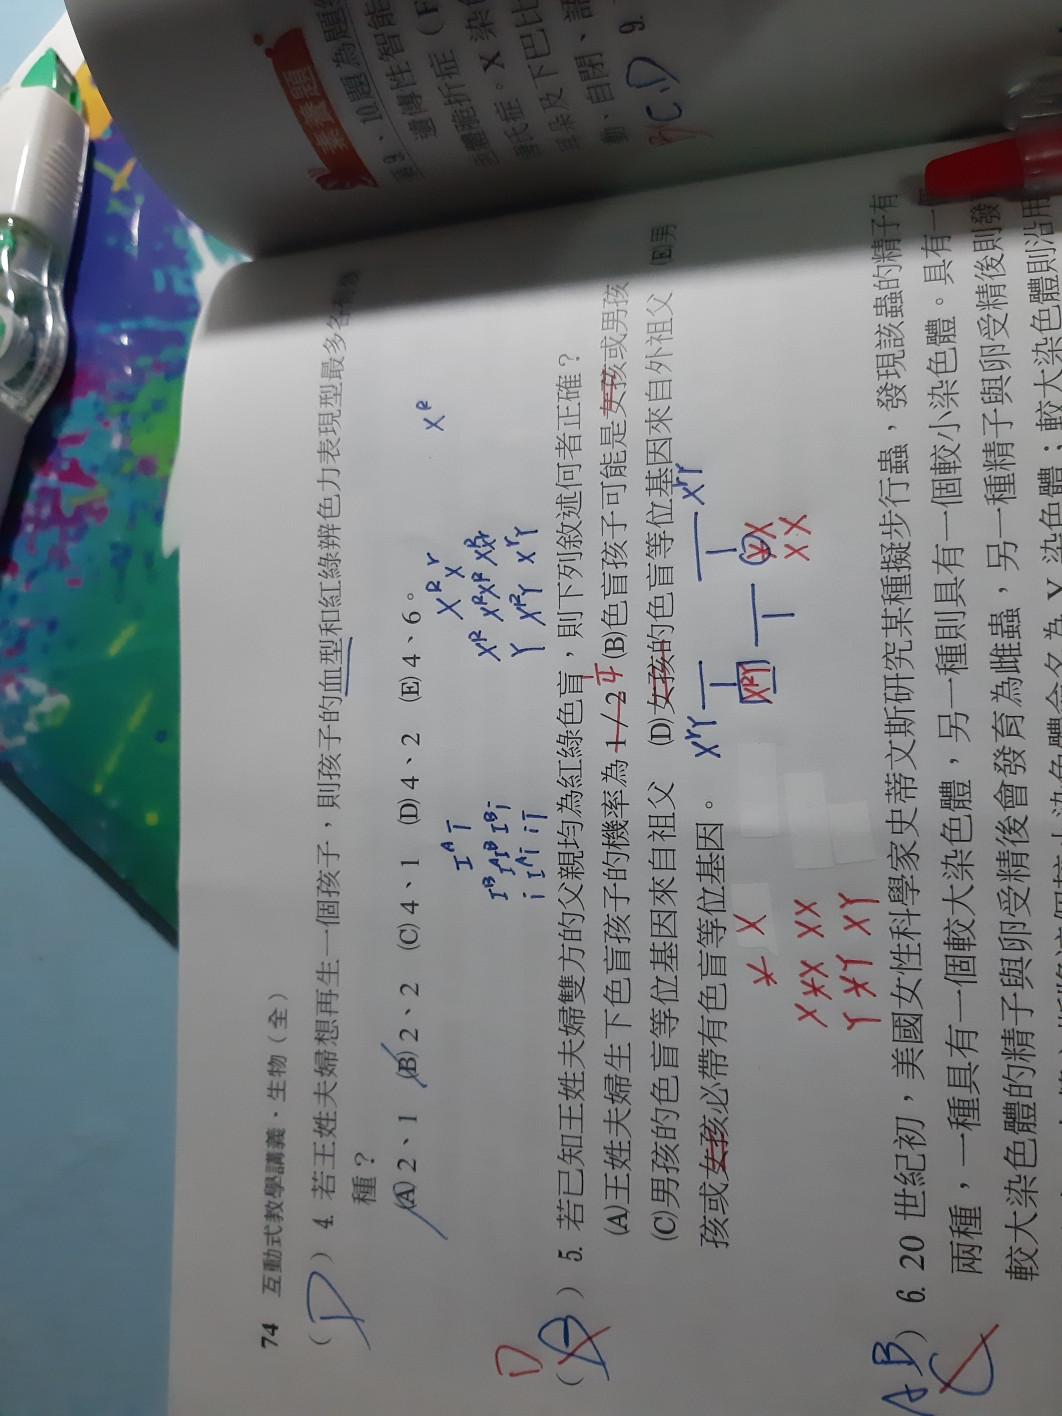 素養題
第 9、10 題為題組
遺傳性智能
染色體脆折症
唐氏症。X 染色
耳朵及下巴比
動、自閉、語
9.
BCD
74 互動式教學講義・生物(全)
( D ) 4. 若王姓夫婦想再生一個孩子,則孩子的血型和紅綠辨色力表現型最多各有幾
種?
(A) 2、1 (B) 2、2 (C) 4、1 (D) 4、2 (E) 4、6。
Xᴿ Xʳ
Xᴿ XᴿXᴿ XᴿXʳ
Y XᴿY XʳY
Xᴿ
Iᴬ i
Iᴮ IᴬIᴮ Iᴮi
i Iᴬi ii
D
( B ) 5. 若已知王姓夫婦雙方的父親均為紅綠色盲,則下列敘述何者正確?
(A)王姓夫婦生下色盲孩子的機率為 1/2 (B)色盲孩子可能是女孩或男孩
1/4
(C)男孩的色盲等位基因來自祖父 (D)女孩的色盲等位基因來自外祖父 (E)男
孩或女孩必帶有色盲等位基因。
XʳY
XʳY
XᴿY
X X
X XX XX
Y XY XY
AB
( C ) 6. 20 世紀初,美國女性科學家史蒂文斯研究某種擬步行蟲,發現該蟲的精子有
兩種,一種具有一個較大染色體,另一種則具有一個較小染色體。具有一
較大染色體的精子與卵受精後會發育為雌蟲,另一種精子與卵受精後則發
Y 染色體;較大染色體則沿用